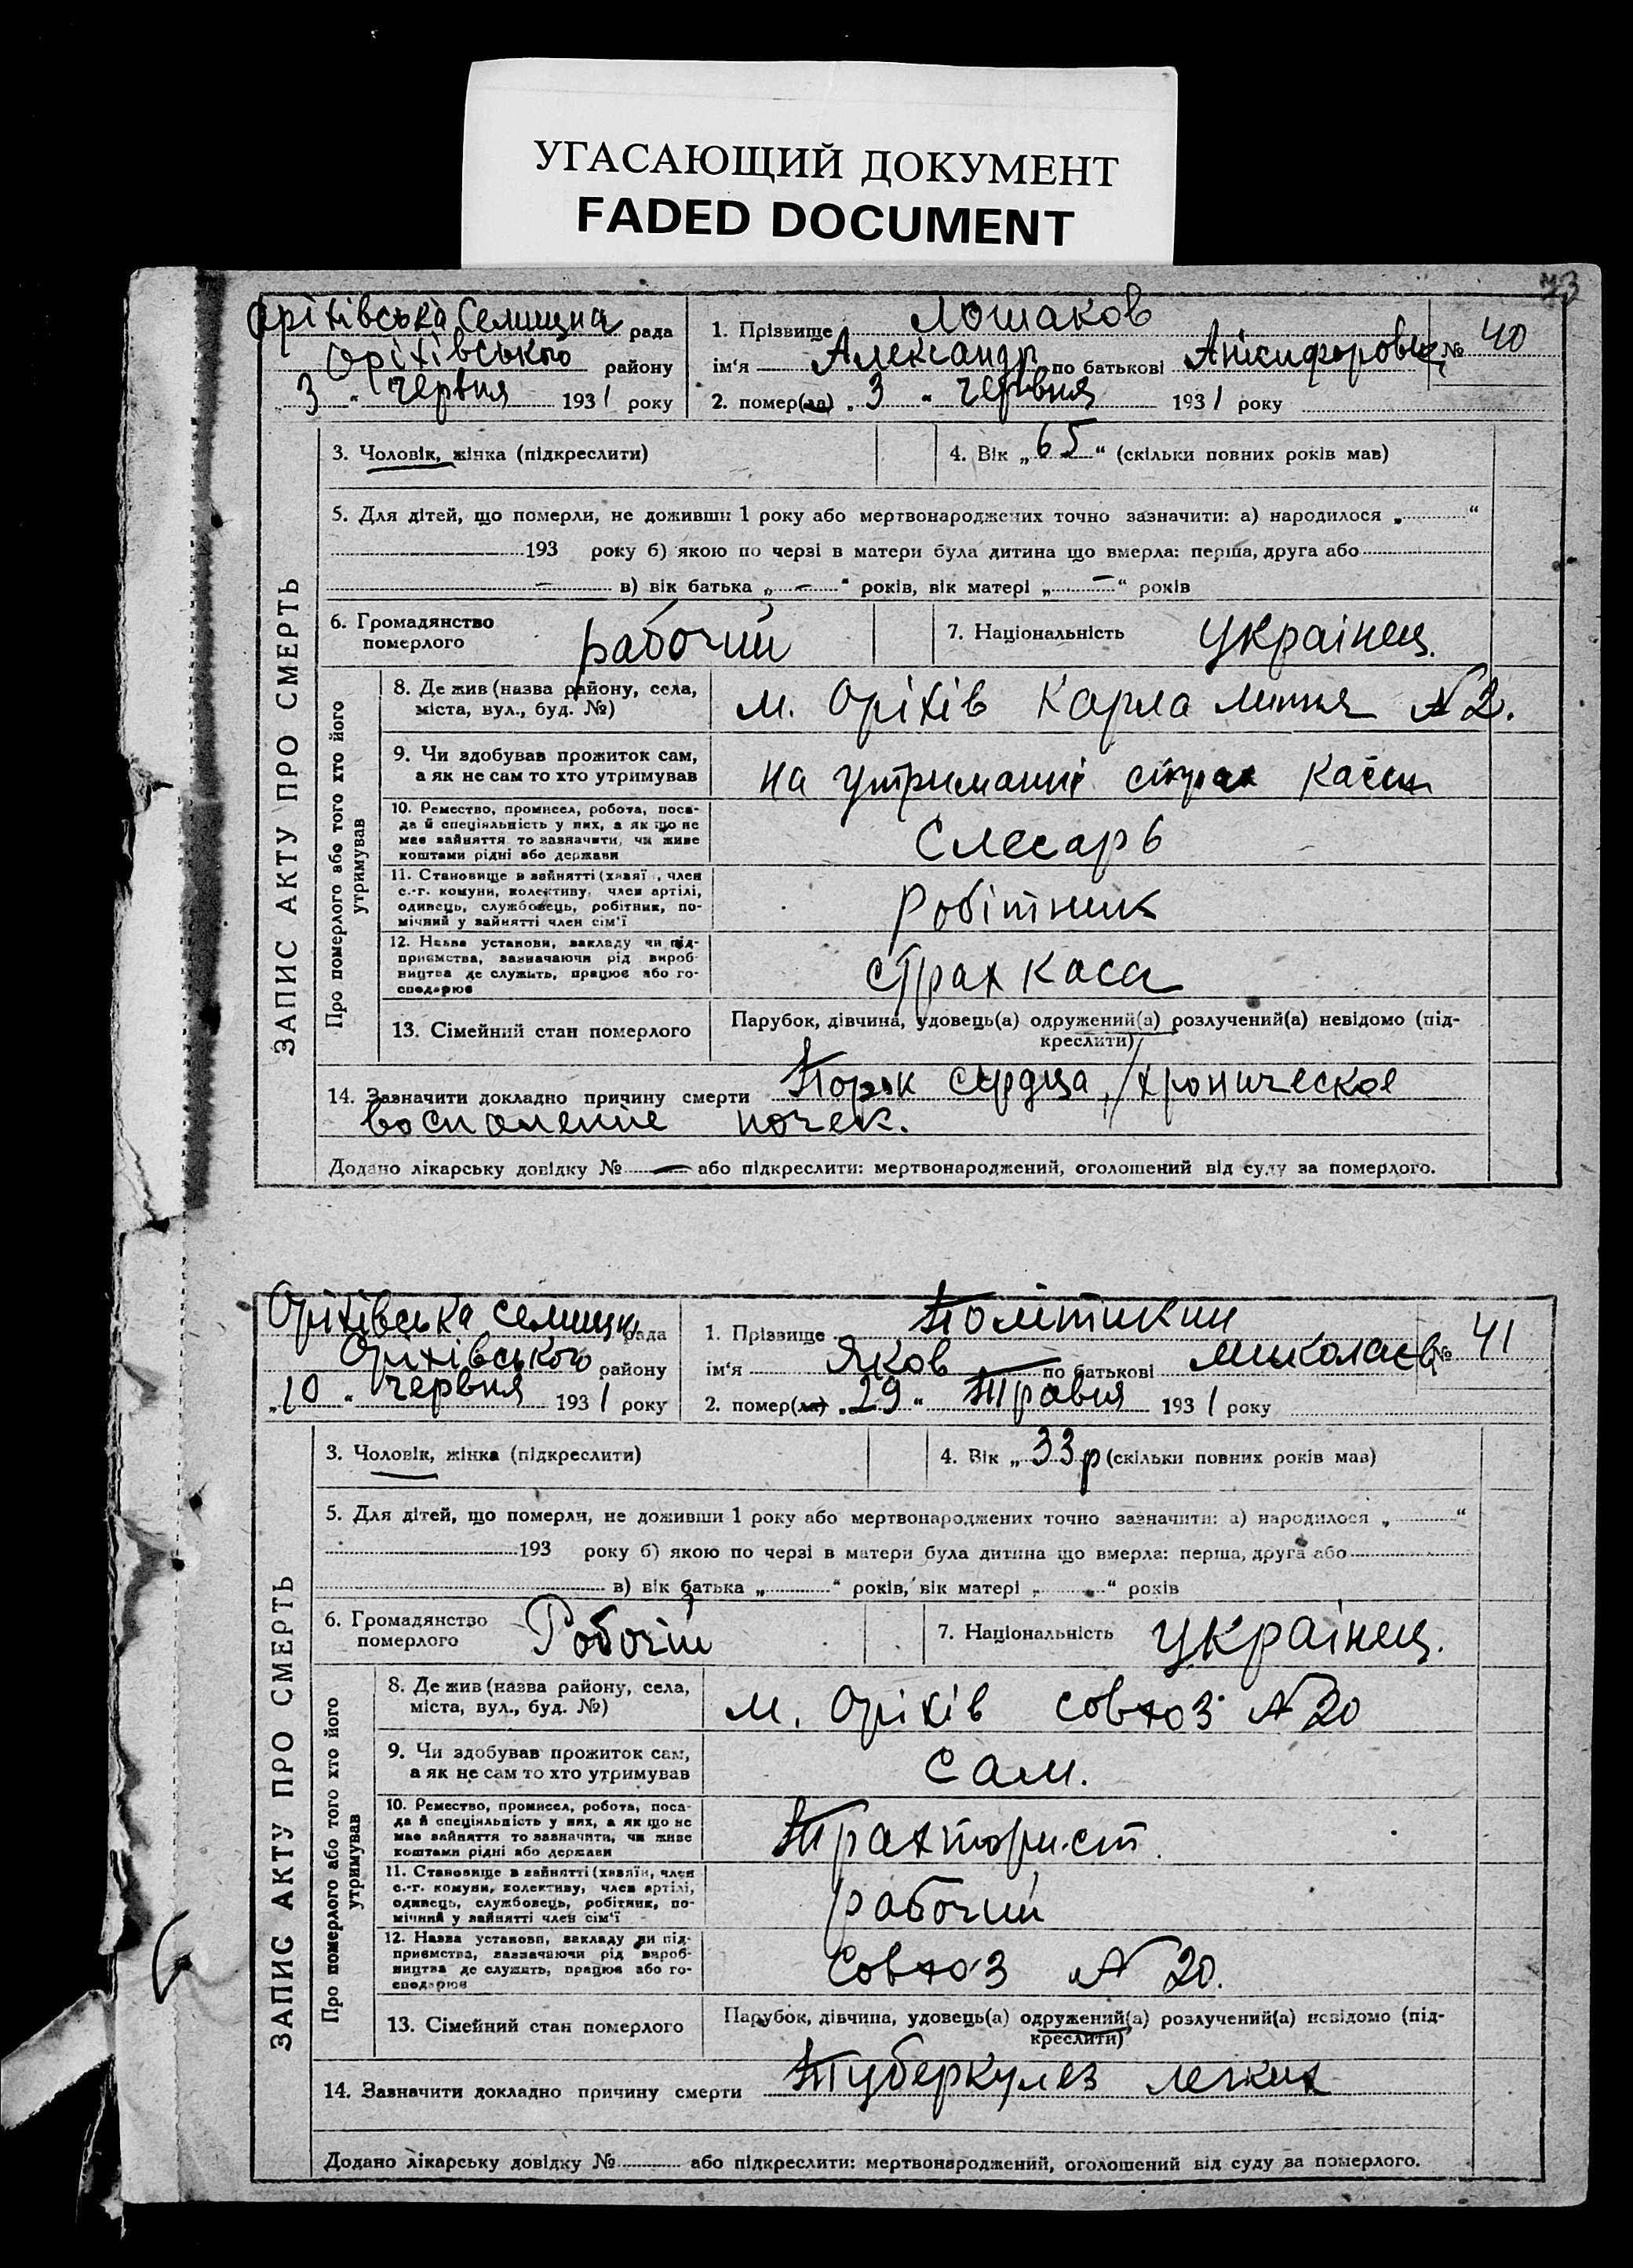 УГАСАЮЩИЙ ДОКУМЕНТ
FADED DOCUMENT
Оріхівська Селищна рада
Оріхівського району
3 " червня 1931 року
1. Прізвище Лошаков
ім'я Александр по батькові Анікифорович № 40
2. помер(ла) „ 3 " червня 1931 року
3. Чоловік, жінка (підкреслити)
4. Вік „ 65 " (скільки повних років мав)
5. Для дітей, що померли, не доживши 1 року або мертвонароджених точно зазначити: а) народилося „ "
193 року б) якою по черзі в матери була дитина що вмерла: перша, друга або
– в) вік батька „ – " років, вік матері „ – " років
ЗАПИС АКТУ ПРО СМЕРТЬ
6. Громадянство померлого рабочий
7. Національність Українец.
Про померлого або того хто його утримував
8. Де жив (назва району, села, міста, вул., буд. №)
м. Оріхів Карла №2.
9. Чи здобував прожиток сам, а як не сам то хто утримував
на утриманні страх кассы
10. Ремество, промисел, робота, поса-
да й спеціяльність у них, а як що не
має зайняття то зазначити, чи живе
коштами рідні або держави
Слесарь
11. Становище в зайнятті (хазяї , член
с.-г. комуни, колективу, член артілі,
одинець, службовець, робітник, по-
мічний у зайнятті член сім'ї
Робітник
12. Назва установи, закладу чи під-
приємства, зазначаючи рід вироб-
ництва де служить, працює або го-
сподарює
страх каса
13. Сімейний стан померлого
Парубок, дівчина, удовець(а) одружений(а) розлучений(а) невідомо (під-
креслити)
14. Зазначити докладно причину смерти Порок сердца, хроническое
воспаление почек.
Додано лікарську довідку № — або підкреслити: мертвонароджений, оголошений від суду за померлого.
Оріхівська селищн рада
Оріхівського району
„10 " червня 1931 року
1. Прізвище Політикин
ім'я Яков по батькові Миколаєв № 41
2. помер(ла) „29 " Травня 1931 року
3. Чоловік, жінка (підкреслити)
4. Вік „ 33 р (скільки повних років мав)
5. Для дітей, що померли, не доживши 1 року або мертвонароджених точно зазначити: а) народилося „ "
193 року б) якою по черзі в матери була дитина що вмерла: перша, друга або
в) вік батька „ " років, вік матері „ " років
ЗАПИС АКТУ ПРО СМЕРТЬ
6. Громадянство померлого Робочій
7. Національність Українец.
Про померлого або того хто його утримував
8. Де жив (назва району, села, міста, вул., буд. №)
м. Оріхів совхоз №20
9. Чи здобував прожиток сам, а як не сам то хто утримував
Сам.
10. Ремество, промисел, робота, поса-
да й спеціяльність у них, а як що не
має зайняття то зазначити, чи живе
коштами рідні або держави
Трахторист.
11. Становище в зайнятті (хазяїн, член
с.-г. комуни, колективу, член артілі,
одинець, службовець, робітник, по-
мічний у зайнятті член сім'ї
рабочий
12. Назва установи, закладу чи під-
приємства, зазначаючи рід вироб-
ництва де служить, працює або го-
сподарює
Совхоз № 20.
13. Сімейний стан померлого
Парубок, дівчина, удовець(а) одружений(а) розлучений(а) невідомо (під-
креслити)
14. Зазначити докладно причину смерти Туберкулез легких
Додано лікарську довідку № або підкреслити: мертвонароджений, оголошений від суду за померлого.